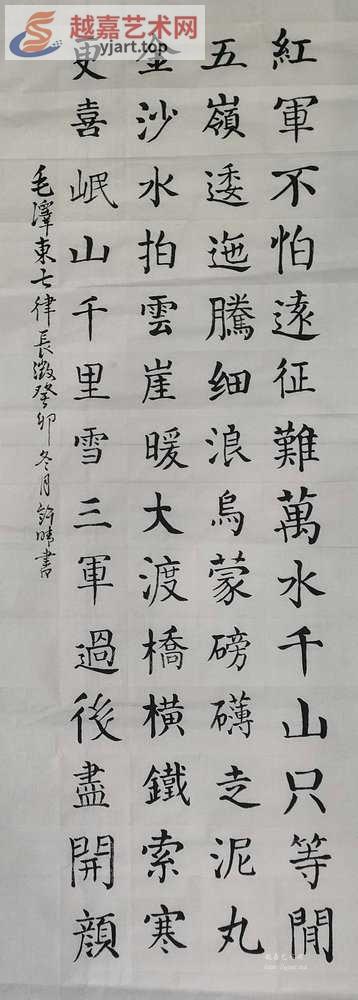 越嘉艺术网
yjart.com
紅軍不怕遠征難萬水千山只等閒
五嶺逶迤騰细浪烏蒙磅礴走泥丸
金沙水拍雲崖暖大渡橋横鐵索寒
更喜岷山千里雪三軍過後盡開顔
毛澤東七律長徵癸卯冬月許晴書